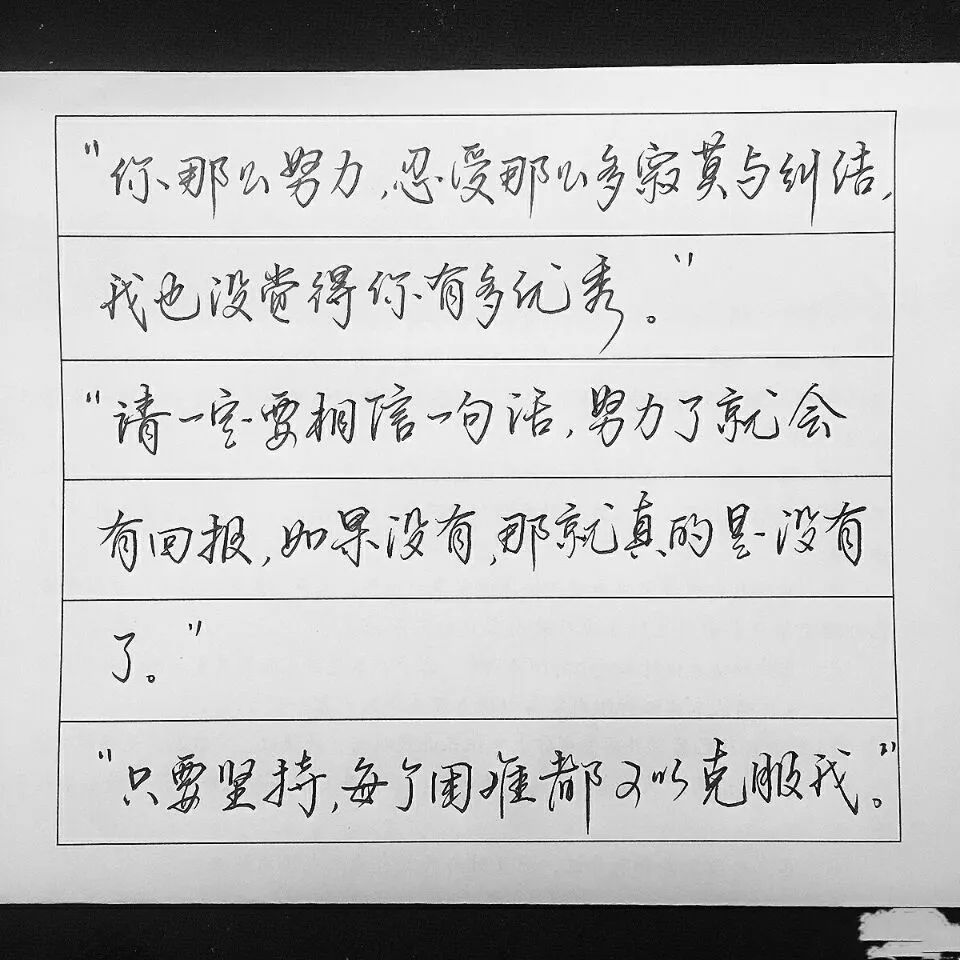 “你那么努力,忍受那么多寂莫与纠结,
我也没觉得你有多优秀。”
“请一定要相信一句话,努力了就会
有回报,如果没有,那就真的是没有
了。”
“只要坚持,每个困难都可以克服我。”